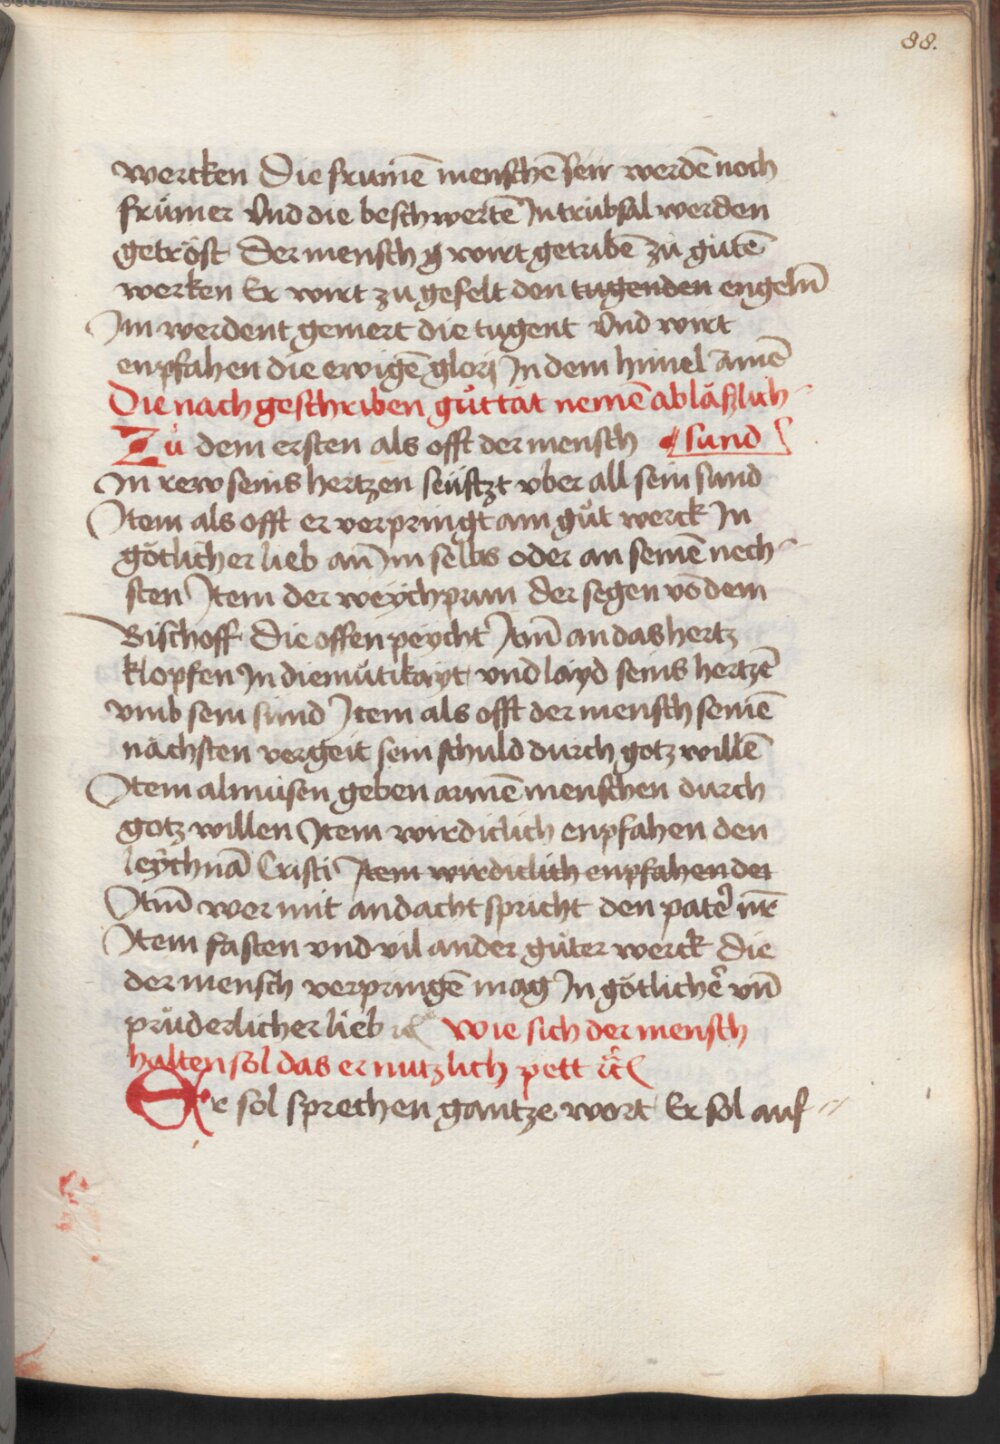 88.
wercken Die frumē menschē sein werdē noch
frümer Vnd die beschwertē In trübsal werden
getröst Der mensch wirt getribē zů gůtē
werken Er wirt zu gefelt den tugenden engelñ
Im werdent gemert die tugent Vnd wirt
enpfahen die ewigē glorj In dem himel amē
Die nach geschriben gůttät nemē abläßlich
Zů dem ersten als offt der mensch sund
In rew seins hertzen seüftzt vber all sein sund
Item als offt er verpringt ain gůt werck In
götlicher lieb an Im selbs oder an seinē nech
sten Item der weÿchprun der segen vō dem
Bischoff Die offen peycht Itm̄ an das hertz
klopfen In diemůtikayt vnd layd seins hertzē
vmb sein sund Item als offt der mensch seinē
nächsten vergeit sein schuld durch gotz willē
Item almüsen geben armē menschen durch
gotz willen Item wirdiclich enpfahen den
leÿchnā Cristi Item wirdiclich enpfahen der
Itm̄ wer mit andacht spricht den pater nr̄
Item fasten vnd vil ander gůter werck die
der mensch verpringē mag In götlicher vñ
prüderlicher lieb wie sich der mensch
halten sol das er nutzlich pett
Er sol sprechen gantze wort Er sol auf